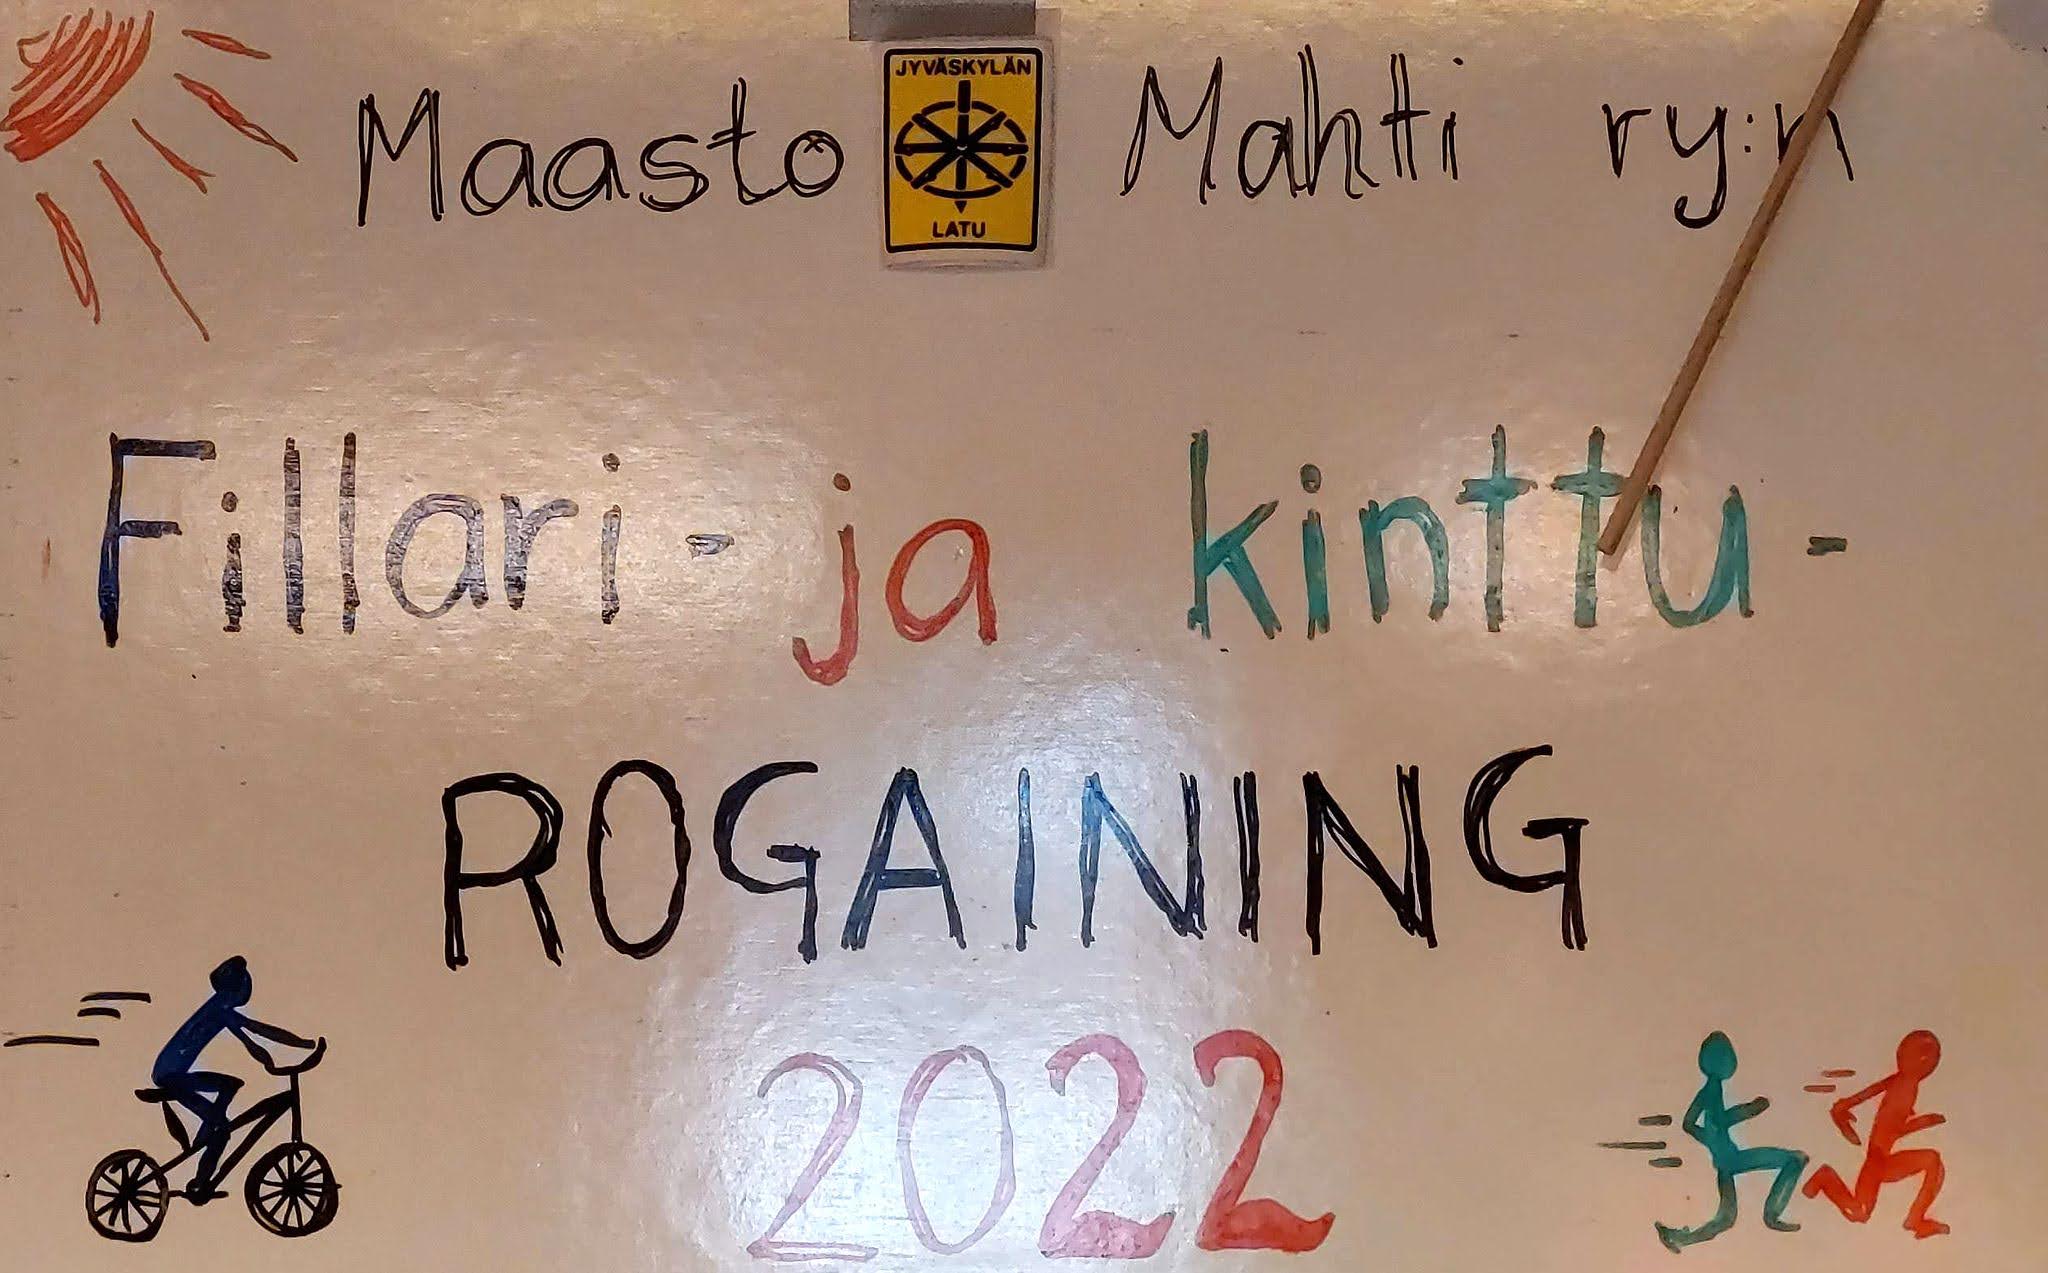 Maasto Mahti ry:n
JYVÄSKYLÄN
LATU
Fillari- ja kinttu-
ROGAINING
2022